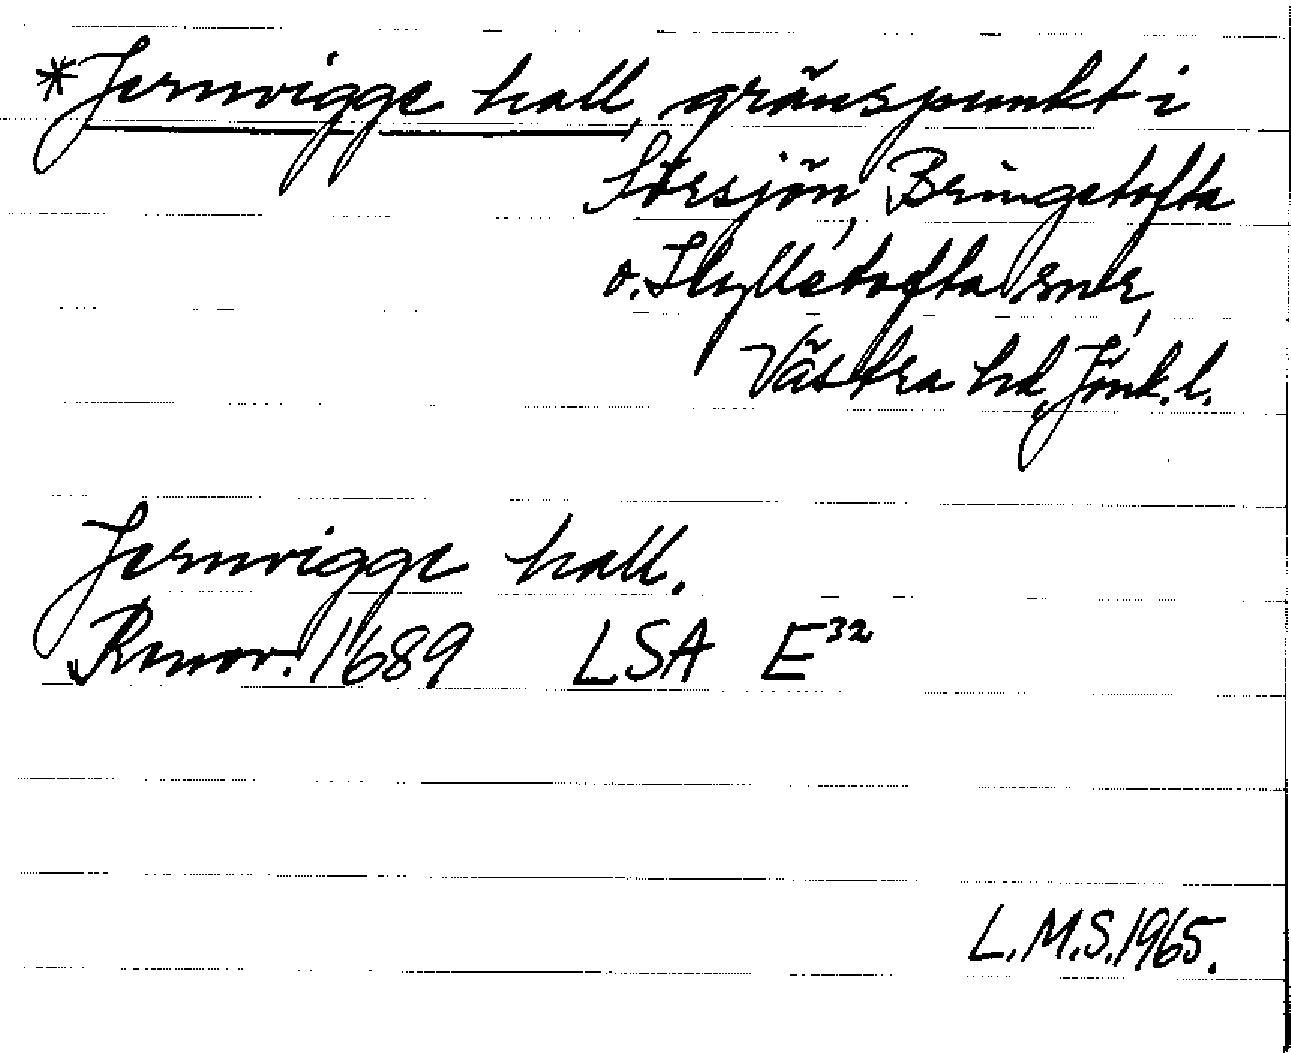 *Jernvigge hall, gränspunkt i
Försjön, Bringetofta
o. Hylletofta snr,
Västra hd, Jönk. l.
Jernvigge hall.
Renov. 1689 LSA E³²
L.M.S. 1965.